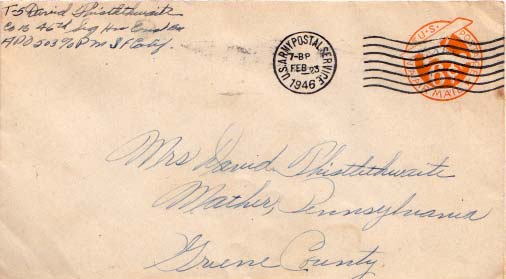 T-5 David Phistlethwaite
Co B 46th Sig Hvy Const Bn
APO 503 % P M S F Calif.
U.S. ARMY POSTAL SERVICE
7-8P
FEB 23
1946
U.S. POSTAGE
AIR MAIL
Mrs David Phistlethwaite
Mather, Pennsylvania
Greene County.